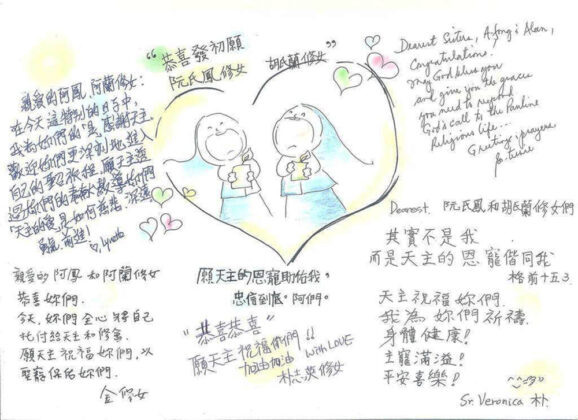 “恭喜發初願
阮氏鳳修女 胡氏蘭修女”
親愛的阿鳳、阿蘭修女:
在今天這特別的日子中,
我為妳們的「是」感謝天主
歡迎妳們更深刻地進入
自己的聖
願天主
天主的愛是如何
勇往前進!
Lynda
Dearest Sisters, A-fong & Alan,
Congratulations.
May God bless you
and give you the graces
you need to respond
God's call to the Pauline
Religious life...
Greetings, prayers
Dearest. 阮氏鳳和胡氏蘭修女們
其實不是我
而是天主的恩寵偕同我
格前十五3.
天主祝福妳們.
我為妳們祈禱.
身體健康!
主寵滿溢!
平安喜樂!
Sr. Veronica 朴
親愛的阿鳳和阿蘭修女
恭喜妳們.
今天, 妳們全心將自己
托付給天主和修會.
願天主祝福妳們, 以
聖寵保佑妳們.
金修女
願天主的恩寵助佑我,
忠信到底。阿們。
“恭喜恭喜”
願天主祝福你們!!
加油加油 with LOVE
朴志英修女